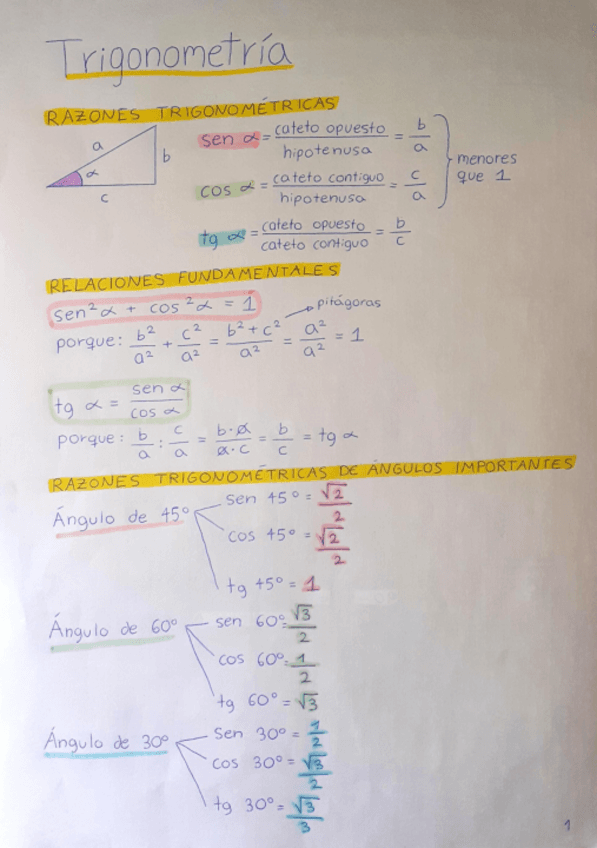 Trigonometría
RAZONES TRIGONOMÉTRICAS
a
b
c
α
sen α = cateto opuesto / hipotenusa = b/a
cos α = cateto contiguo / hipotenusa = c/a
menores que 1
tg α = cateto opuesto / cateto contiguo = b/c
RELACIONES FUNDAMENTALES
sen²α + cos²α = 1
pitágoras
porque: b²/a² + c²/a² = b² + c²/a² = a²/a² = 1
tg α = sen α / cos α
porque: b/a : c/a = b·a/a·c = b/c = tg α
RAZONES TRIGONOMÉTRICAS DE ÁNGULOS IMPORTANTES
Ángulo de 45º
sen 45º = √2/2
cos 45º = √2/2
tg 45º = 1
Ángulo de 60º
sen 60º = √3/2
cos 60º = 1/2
tg 60º = √3
Ángulo de 30º
sen 30º = 1/2
cos 30º = √3/2
tg 30º = √3/3
1